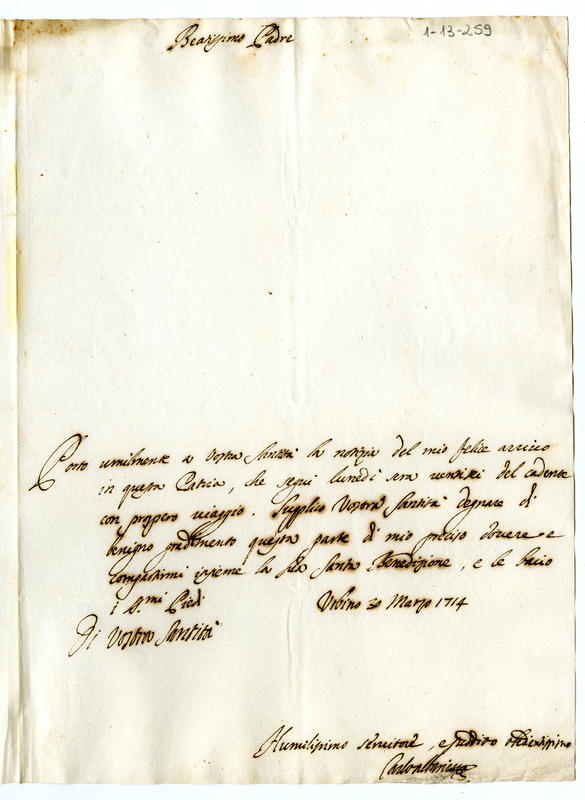 Beatissimo Padre
1-13-259
Porto umilmente a Vostra Santità la notizia del mio felice arrivo
in questa Patria, che seguì lunedì sera ventisei del cadente
con prospero viaggio. Supplico Vostra Santità degnare di
benigno gradimento questa parte di mio preciso dovere e
compartirmi insieme la sua Santa Benedizione, e le bacio
i S.mi Piedi Urbino 30 Marzo 1714
Di Vostra Santità
Humilissimo servitore, e suddito obedientissimo
Carlo Albani